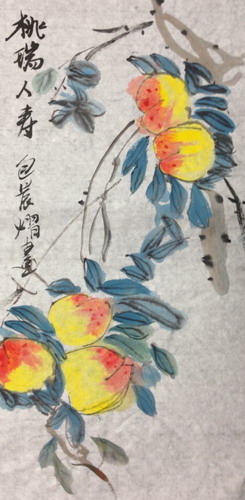 桃瑞人寿
包炭熠画